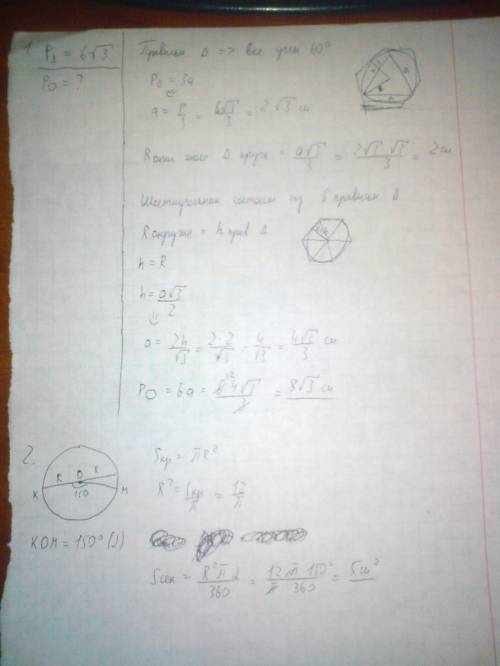 1. P₃ = 6√3
P⬡ = ?
Правильн Δ => все углы 60°
P₃ = 3a
a = P/3 = 6√3/3 = 2√3 см
R опис около Δ круга = a√3/3 = 2√3·√3/3 = 2 см
Шестиугольник состоит из 6 правильн Δ
R окружн = h прав Δ
h = R
h = a√3/2
a = 2h/√3 = 2·2/√3 = 4/√3 = 4√3/3 см
P⬡ = 6a = 6·4√3/3 = 8√3 см
2.
R O R
K 150 M
KOM = 150°
Sкр = πR²
R² = Sкр/π = 12/π
Sсек = R²πα/360 = 12·π·150°/π·360 = 5 см²